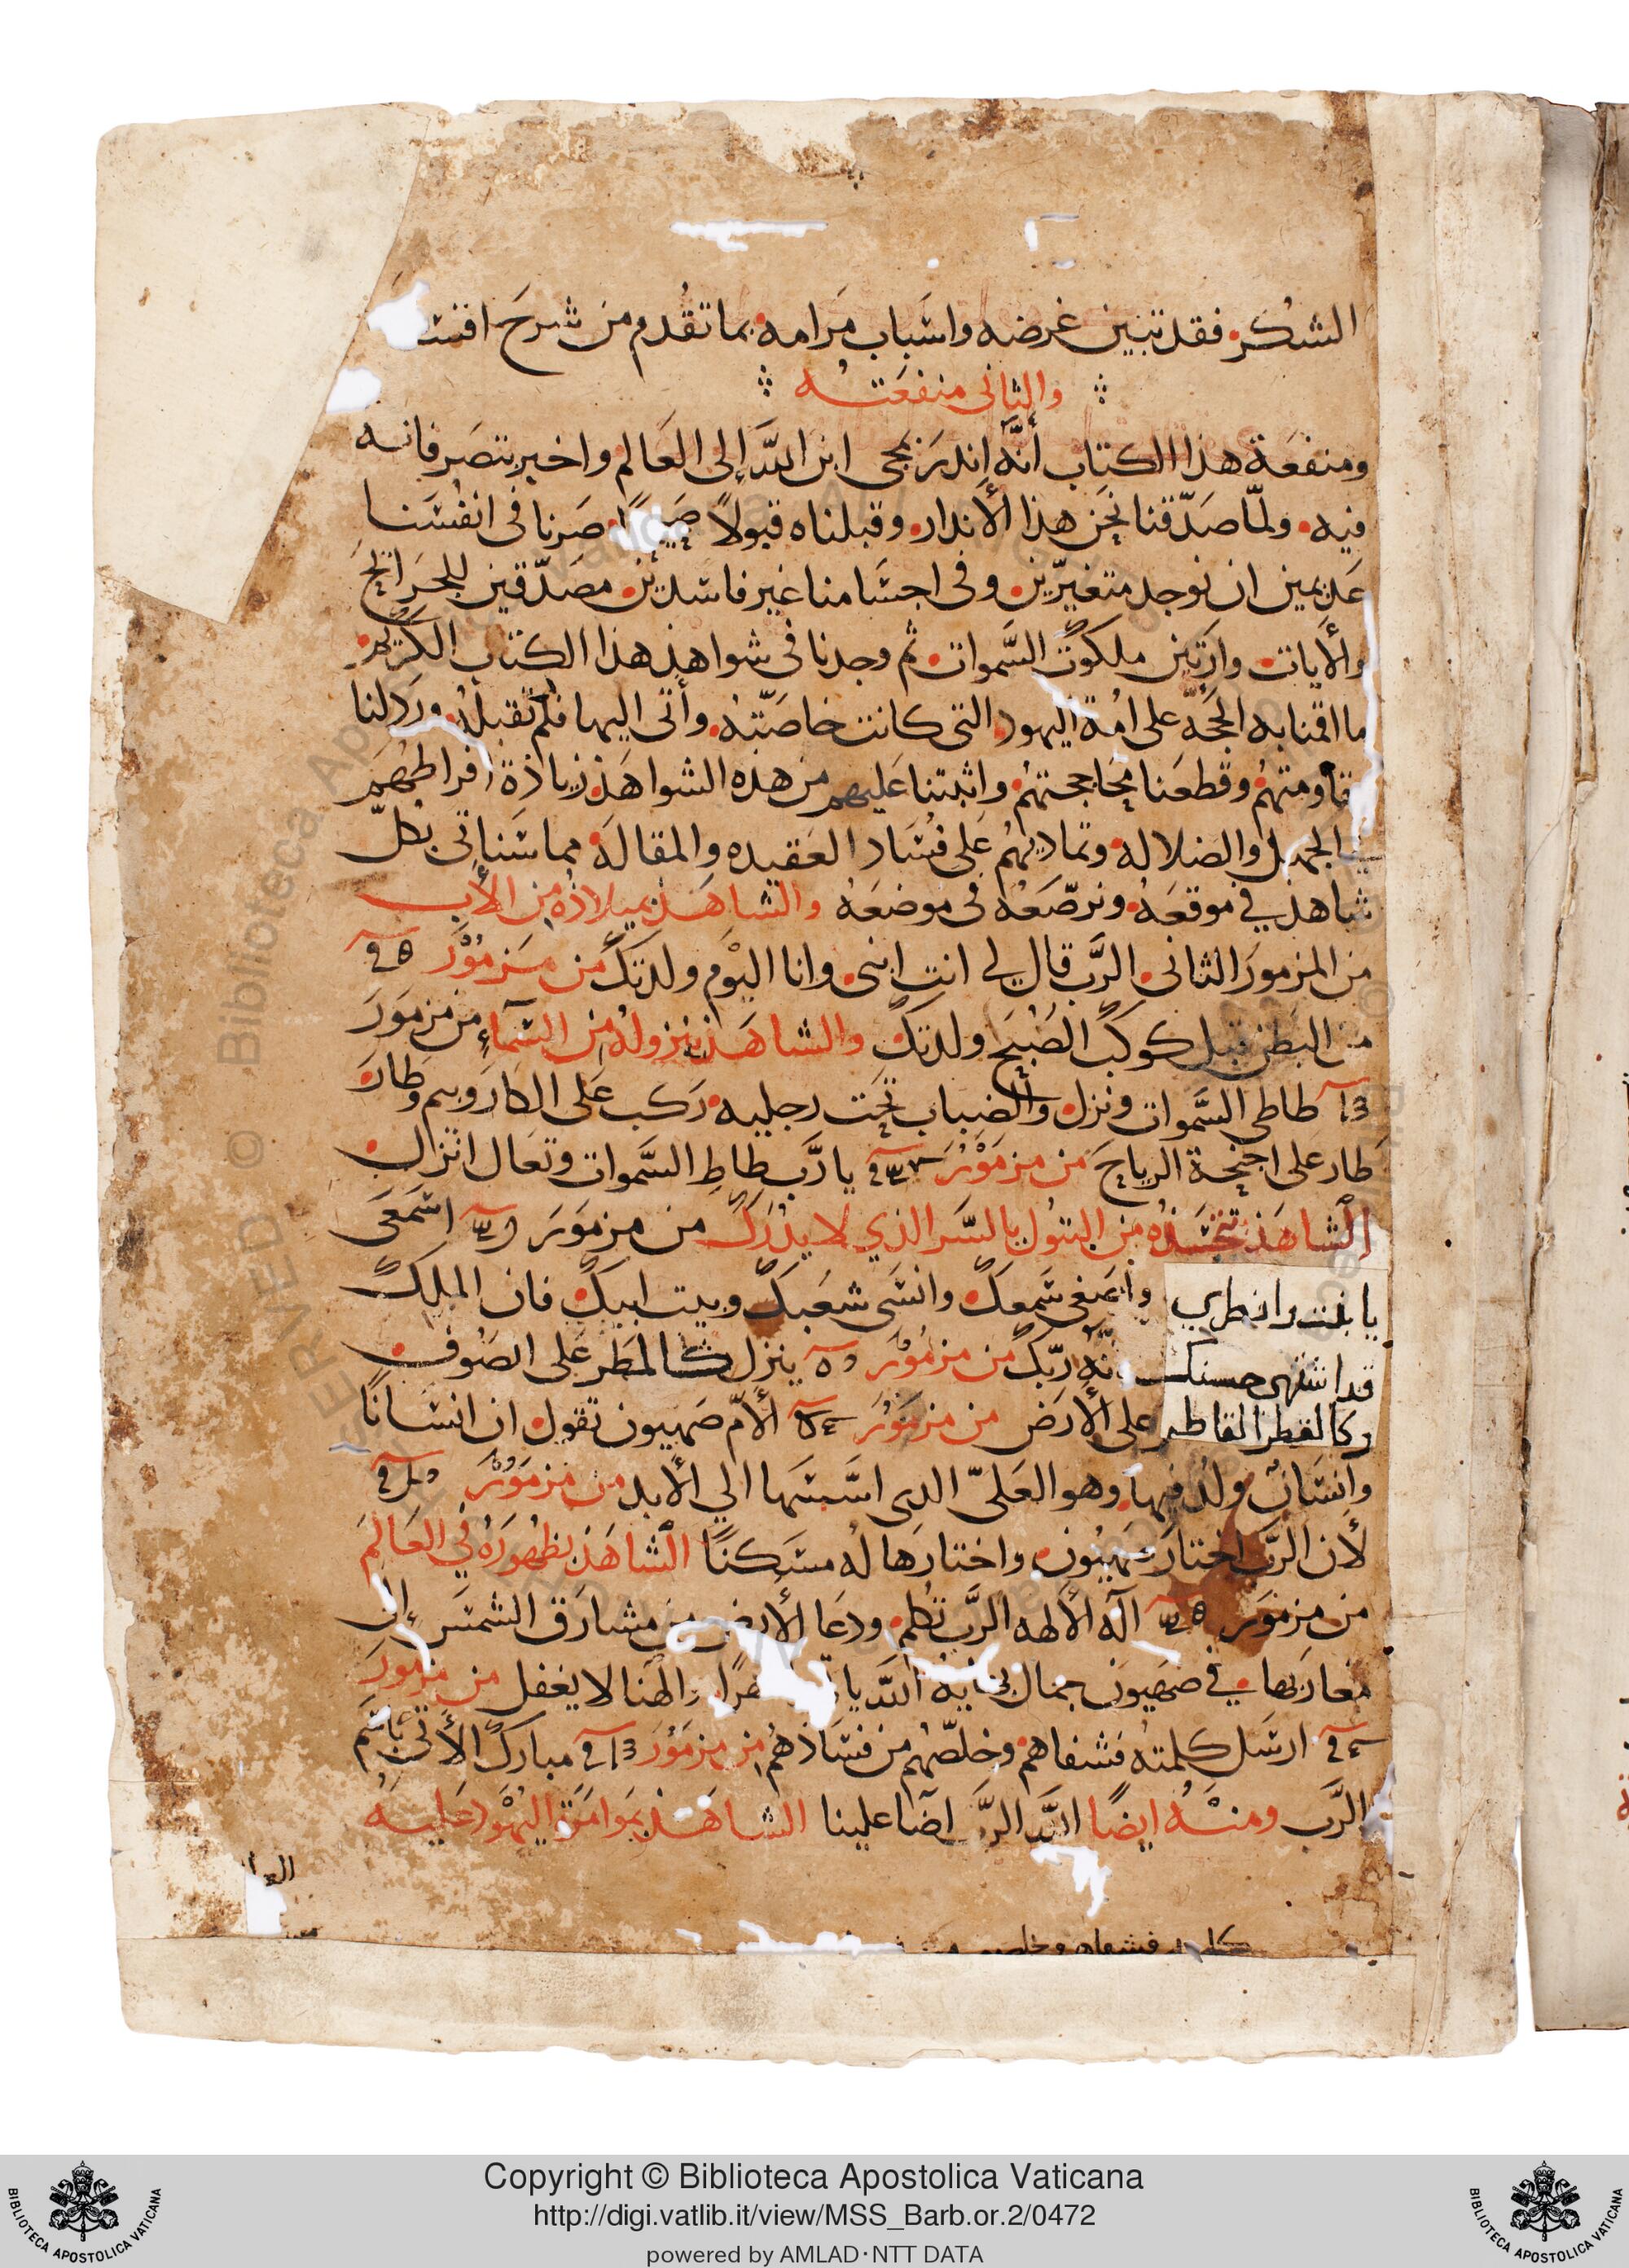 الشكر فقد تبين غرضه واسباب مرامه بما تقدم من شرح
والثاني منفعته
ومنفعة هذا الكتاب أنَّه انذر بمجي ابن اللَّه إلى العالم واخبر بتصرفاته
فيه ولمّا صدّقنا نحن هذا الأنذار وقبلناه قبولاً صرنا في انفسنا
عديمين ان نوجد متغيرّين وفي اجسامنا غير فاسدين مصدّقين للجرائح
والأيات وارثين ملكوت السَّموات ثم وجدنا في شواهد هذا الكتاب الكريم
ما اقمنا به الحجَّه على امّة اليهود التي كانت خاصّتهُ وأتى اليها فلم تقبلهُ
مقاومتهُم وقطعنا محاججتهُم واثبتنا عليهم من هذه الشواهد زيادة افراطهم
الجهل والضلاله وتماديهُم على فساد العقيده والمقاله مما سناتي بكلّ
شاهد في موقعهُ ونرصّعهُ في موضعهُ والشاهد بميلادهُ من الأب
من المزمور الثاني الرَّب قال لي انت ابني وانا اليوم ولدتك من مزمور
من البطن قبل كوكب الصّبح ولدتك والشاهد بنزولهُ من السّمآء من مزمور
طاطي السَّموات ونزل والضباب تحت رجليه ركب على الكاروبيم وطار
طار على اجنحة الرياح من مزمور يا ربّ طاطِ السَّموات وتعال انزل
الشاهد بتجسّدهُ من البتول بالسر الذي لا يدرك من مزمور اسمعي
يا بنت وانظري واصغي سمعك وانسي شعبك وبيت ابيك فان الملك
قد اشتهى حسنك نّه ربّك من مزمور ينزل كالمطر على الصوف
وكالقطر القاطر على الأرض من مزمور الأمّ صهيون تقول ان انسانًا
وانسان ولد فيها وهو العليّ الدي اسّسها الي الأبد من مزمور
لأن الربّ اختار صهيون واختارها لهُ مسكنًا الشاهد بظهورهُ في العالم
من مزمور اله الألهه الرَّب تكلم ودعا الأرض من مشارق الشمس إلى
مغاربها في صهيون جمال اللَّه والهنا لا يغفل من مزمور
ارسل كلمتهُ فشفاهم وخلصّهُم من فسادهُم من مزمور مبارك الأتي باسم
الرَّب ومنهُ ايضًا اللَّه الرَّب اضا علينا الشاهد بموامرة اليهود عليهُ
Copyright © Biblioteca Apostolica Vaticana
http://digi.vatlib.it/view/MSS_Barb.or.2/0472
powered by AMLAD·NTT DATA
BIBLIOTECA APOSTOLICA VATICANA
BIBLIOTECA APOSTOLICA VATICANA